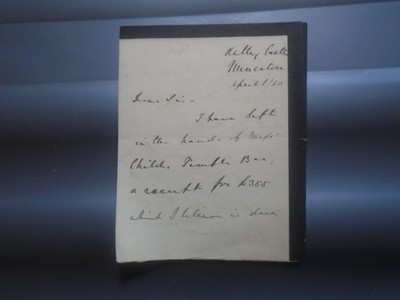 Castle
April 1/80
Dear Sir -
I have left
in the hands of Messrs
Child, Temple Bar,
a receipt for £355
which I believe is due